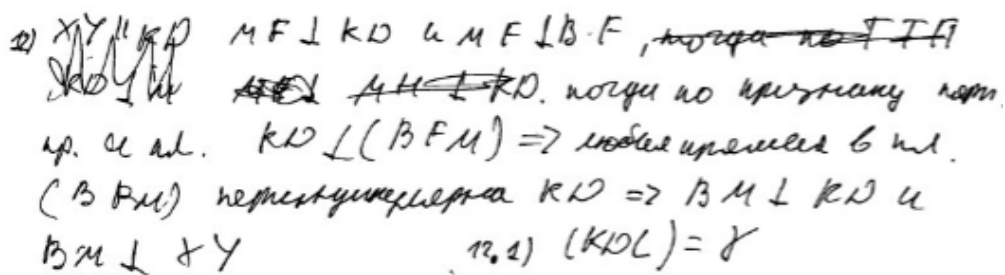 12) MF ⊥ KD и MF ⊥ BF,
тогда по признаку перп.
пр. и пл. KD ⊥ (BFM) => любая прямая в пл.
(BFM) перпендикулярна KD => BM ⊥ KD и
BM ⊥ XY 12.1) (KDL) = γ